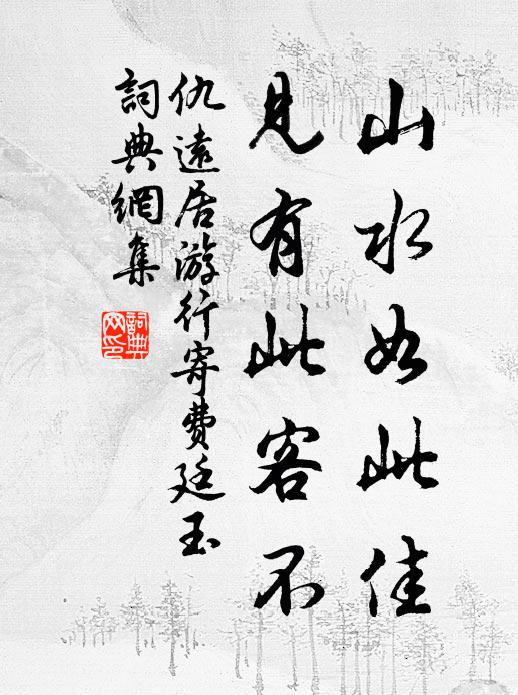 山水如此佳
見有此客不
仇遠居游行寄費廷玉
詞典網集
詞典網印